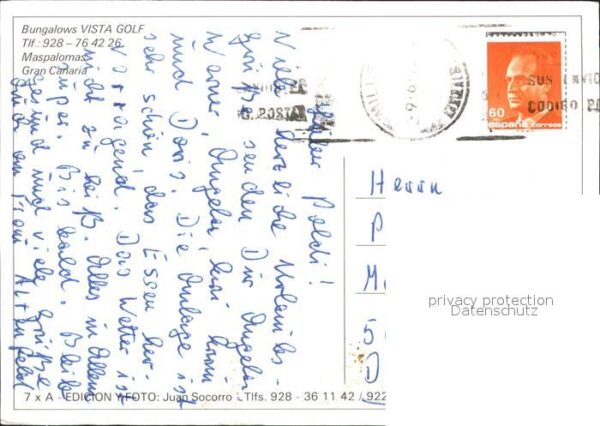 Bungalows VISTA GOLF
Tlf.: 928 – 76 42 26
Maspalomas
Gran Canaria
Lieber Poldi!
Viele herzliche Urlaubs-
grüße senden Dir Angela
Werner, Angela,
und Doris. Die Anlage ist
sehr schön, das Essen her-
vorragend. Das Wetter ist
nicht zu heiß. Alles in Allem
super. Bis bald. Bleib
gesund und viele Grüße
auch an Frau Altenfeld
POSTAL
60
españa correos
SUS ENVIO
CODIGO PO
Herrn
P
M
5
D
privacy protection
Datenschutz
7 x A - EDICION Y FOTO: Juan Socorro - Tlfs. 928 - 36 11 42 / 922